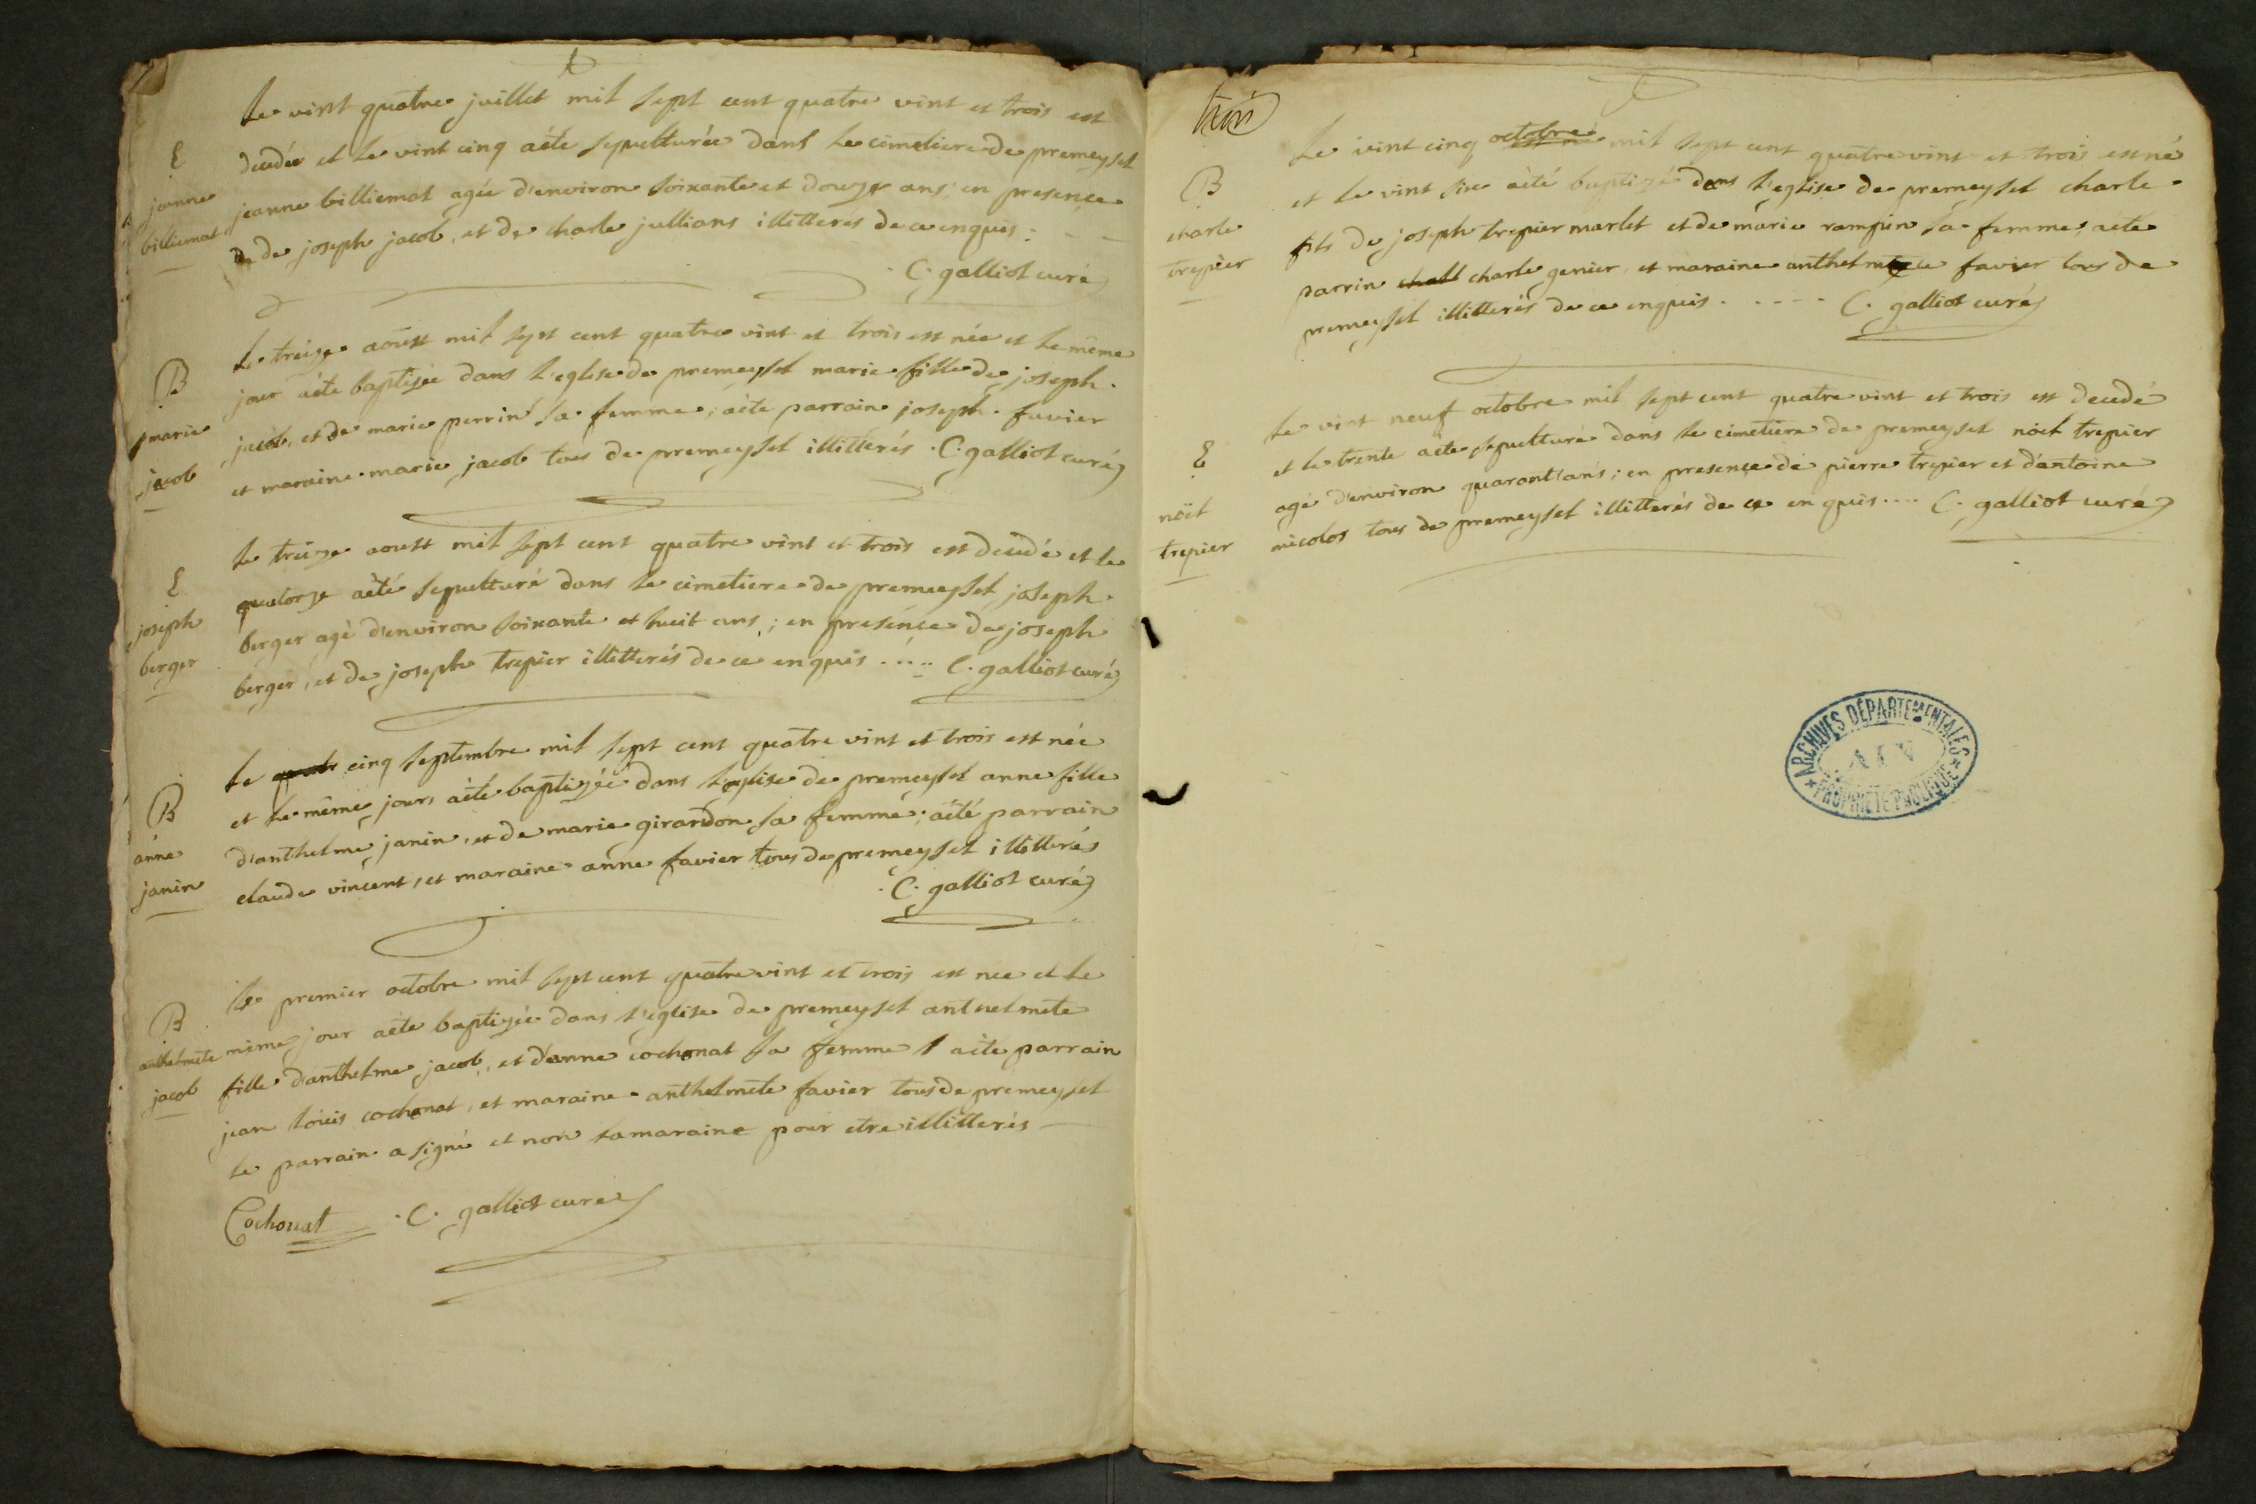 Le vint quatre juillet mil sept cent quatre vint et trois est
E
decedée et le vint cinq aété sepulturée dans le cimetiere de premeysel
jeanne
billiemat
jeanne billiemat agée d'environ soixante et douze ans; en presence
de de joseph jacob, et de charle jullians illitteres de ce enquis
C. galliot curé
Le treize aoust mil sept cent quatre vint et trois est née et le même
B
marie
jacob
jour aété baptizée dans l'eglise de premeysel marie fille de joseph
jacob, et de marie perrin sa femme; aété parrain joseph favier
et maraine marie jacob tous de premeysel illitterés C. galliot curé
Le treize aoust mil sept cent quatre vint et trois est decedé et le
E
joseph
berger
quatorze aété sepulturé dans le cimetiere de premeysel joseph
berger agé d'environ soixante et huit ans; en presence de joseph
berger, et de joseph trepier illitterés de ce enquis .... C. galliot curé
Le quatr cinq septembre mil sept cent quatre vint et trois est née
B
anne
janin
et le même jours aété baptizée dans l'eglise de premeysel anne fille
d'anthelme janin, et de marie girardon sa femme; aété parrain
claude vincent, et maraine anne favier tous de premeysel illitterés
C. galliot curé
Le premier octobre mil sept cent quatre vint et trois est nee et le
B
anthelmete
jacob
même jour aété baptizée dans l'eglise de premeysel anthelmete
fille d'anthelme jacob, et d'anne cochonat sa femme aété parrain
jean louis cochonat, et maraine anthelmete favier tous de premeysel
le parrain a signé et non la maraine pour etre illitterés
Cochonat C. galliot curé
Le vint cinq octobre mil sept cent quatre vint et trois est né
B
charle
trepier
et le vint six aété baptizé dans l'eglise de premeysel charle
fils de joseph trepier marlet et de marie rampin sa femme, aété
parrin chall charle genier, et maraine anthelmete favier tous de
premeysel illitterés de ce enquis ..... C. galliot curé
Le vint neuf octobre mil sept cent quatre vint et trois est decedé
E
nöel
trepier
et le trente aété sepulturé dans le cimetiere de premeysel nöel trepier
agé d'environ quarant'ans; en presence de pierre trepier et d'antoine
micolos tous de premeysel illitterés de ce en quis .... C. galliot curé
ARCHIVES DÉPARTEMENTALES
AIN
PROPRIÉTÉ PUBLIQUE